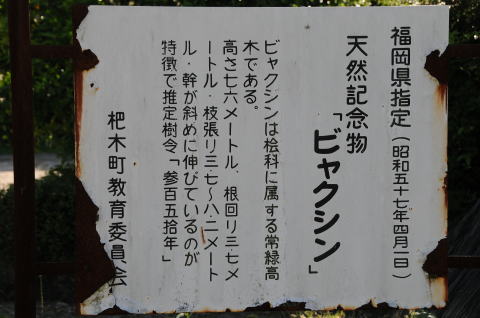 福岡県指定(昭和五十七年四月一日)
天然記念物
「ビャクシン」
ビャクシンは桧科に属する常緑高
木である。
高さ七六メートル．根回り三・七メ
ートル・枝張り三・七～八・二メート
ル・幹が斜めに伸びているのが
特徴で推定樹令「参百五拾年」
杷木町教育委員会